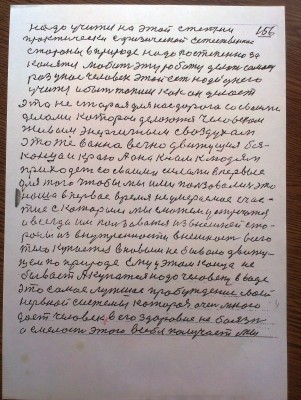 156
надо учится на этой степени
практически с физической естественной
стороны в природе надо постепенно за
каляться любить эту работу делать самому
разумное человек этой сет надо у него
учится и быть таким как он делает
Это не старая для нас дорога со своими
делами которая делаются человеком
живым энергичным с воздухам
это же ванна вечно движущая без
конца и краю Она к нам к людям
приходит со своими силами впервые
для того чтобы мы ими пользовались это
наше в первое время неумираемое счас-
тие с которым мы сможем встречатся
и всегда им пользоватся из внешней сто-
роны из внутренности внешность всего
тело купается в новым не бывало движу-
щем по природе Ему в этом конца не
бывает А купатся надо человеку в воде
это самое лучшее пробуждение моей
нервной системы которая очень много
дает человеку в его здоровие не боязни
а смелость этого всего получает мы